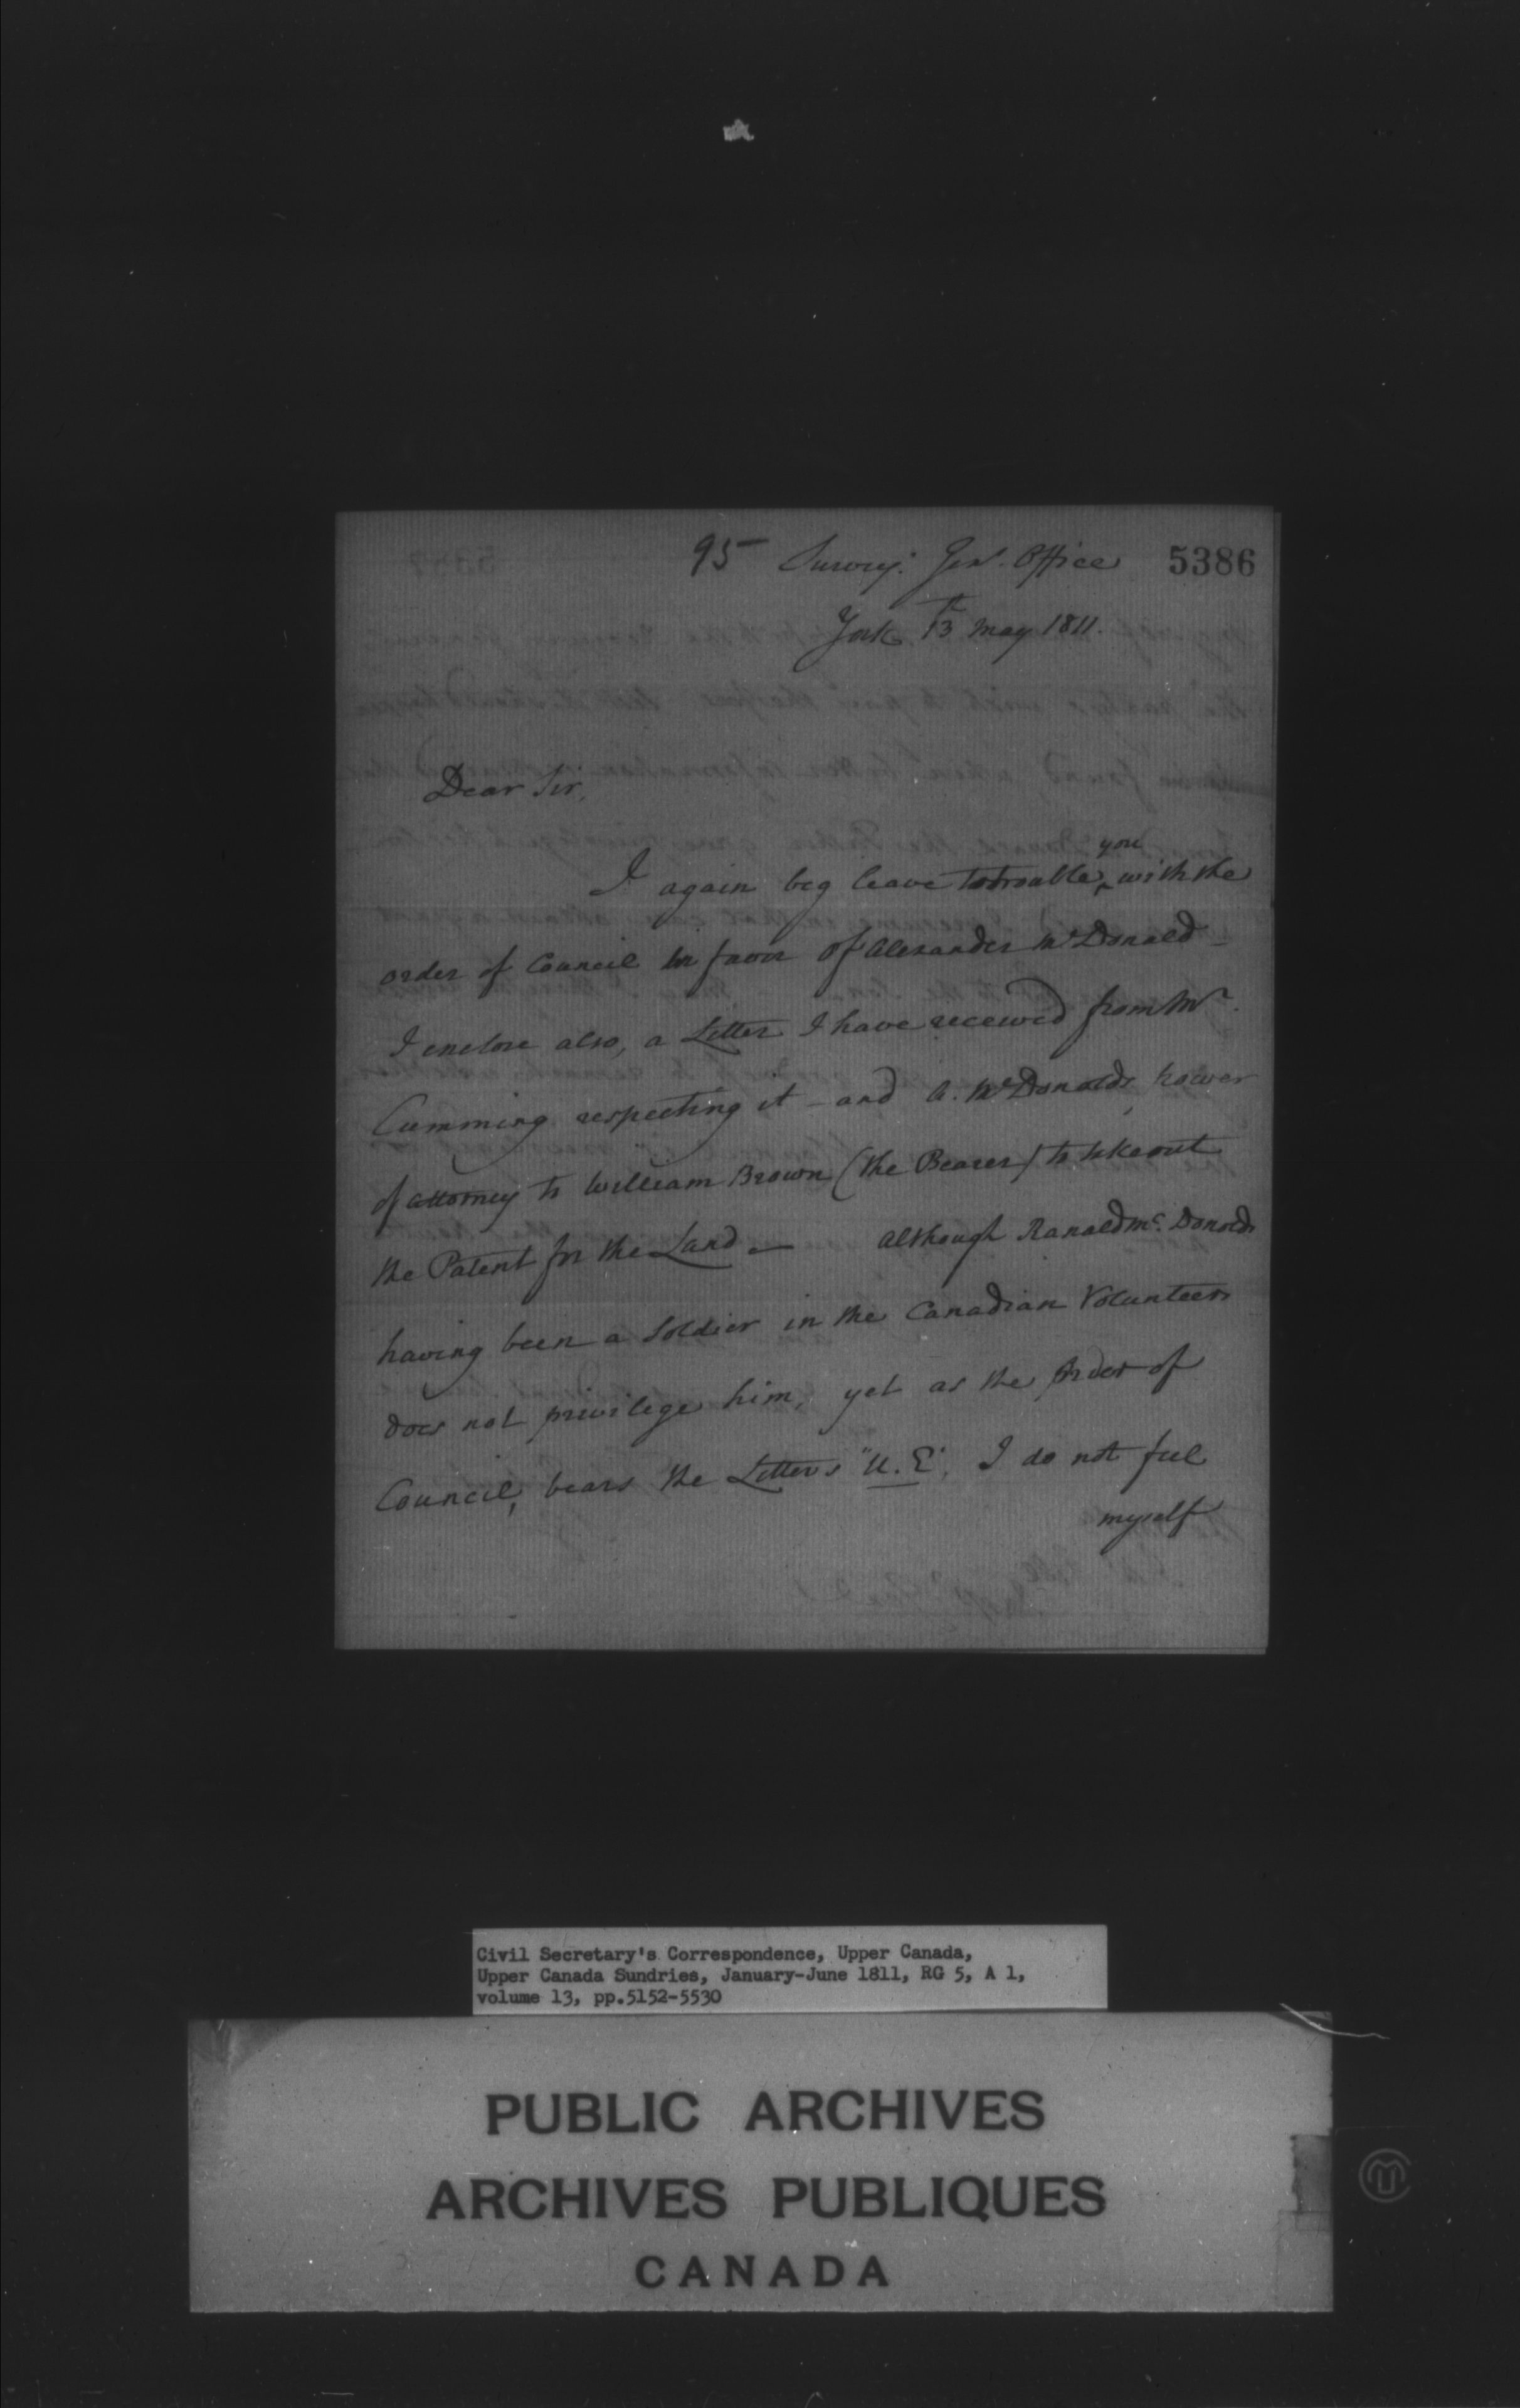 95 Survey.. Genl. Office 5386
York 13th May 1811.
Dear Sir,
I again beg leave to trouble you with the
order of Council in favor of Alexander McDonald
I enclose also, a Letter I have received from Mr.
Cumming respecting it - and A. McDonalds power
of attorney to William Brown (the Bearer) to take out
the Patent for the Land — although Ranald Mc. Donald
having been a Soldier in the Canadian Volunteers
does not privilege him, yet as the Order of
Council, bears the Letters "U.E". I do not feel
myself
Civil Secretary's Correspondence, Upper Canada,
Upper Canada Sundries, January-June 1811, RG 5, A 1,
volume 13, pp.5152-5530
PUBLIC ARCHIVES
ARCHIVES PUBLIQUES
CANADA